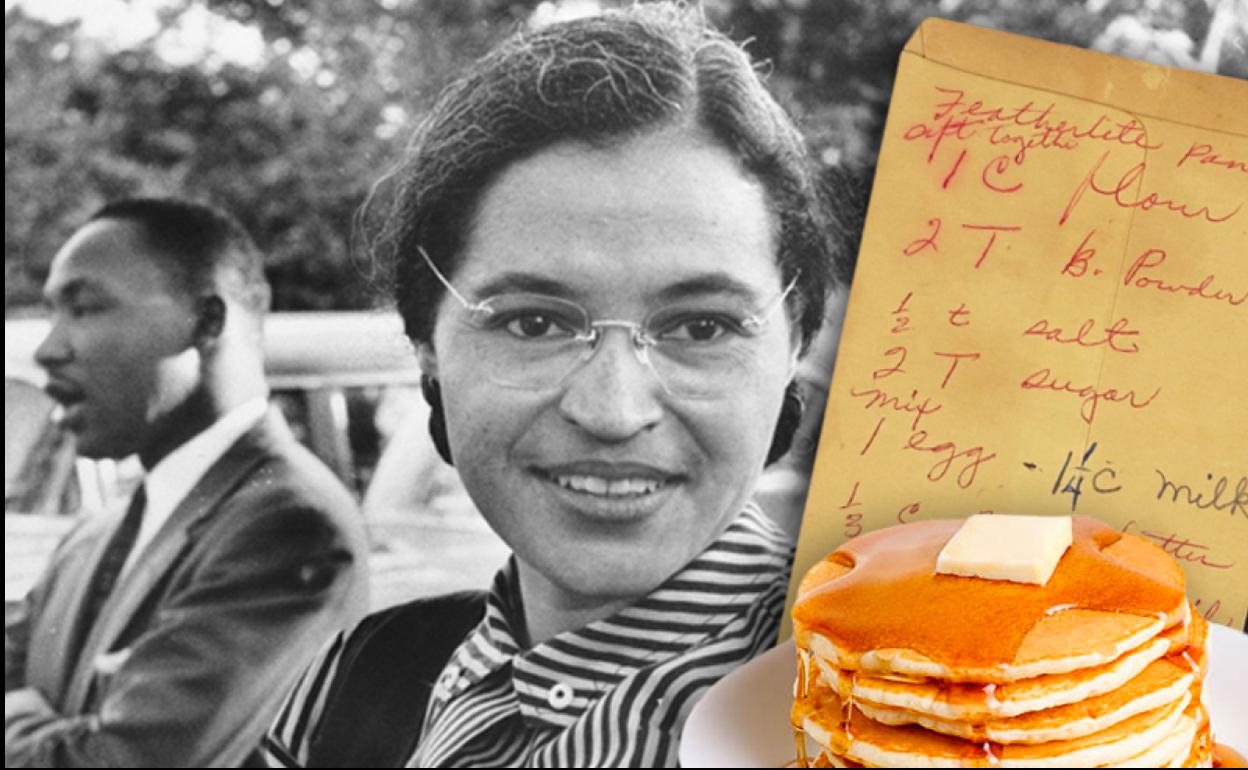 Featherlite Pan
sift together
1 C flour
2 T B. Powder
1/2 t salt
2 T sugar
mix
1 egg - 1 1/4 C milk
1/3 C